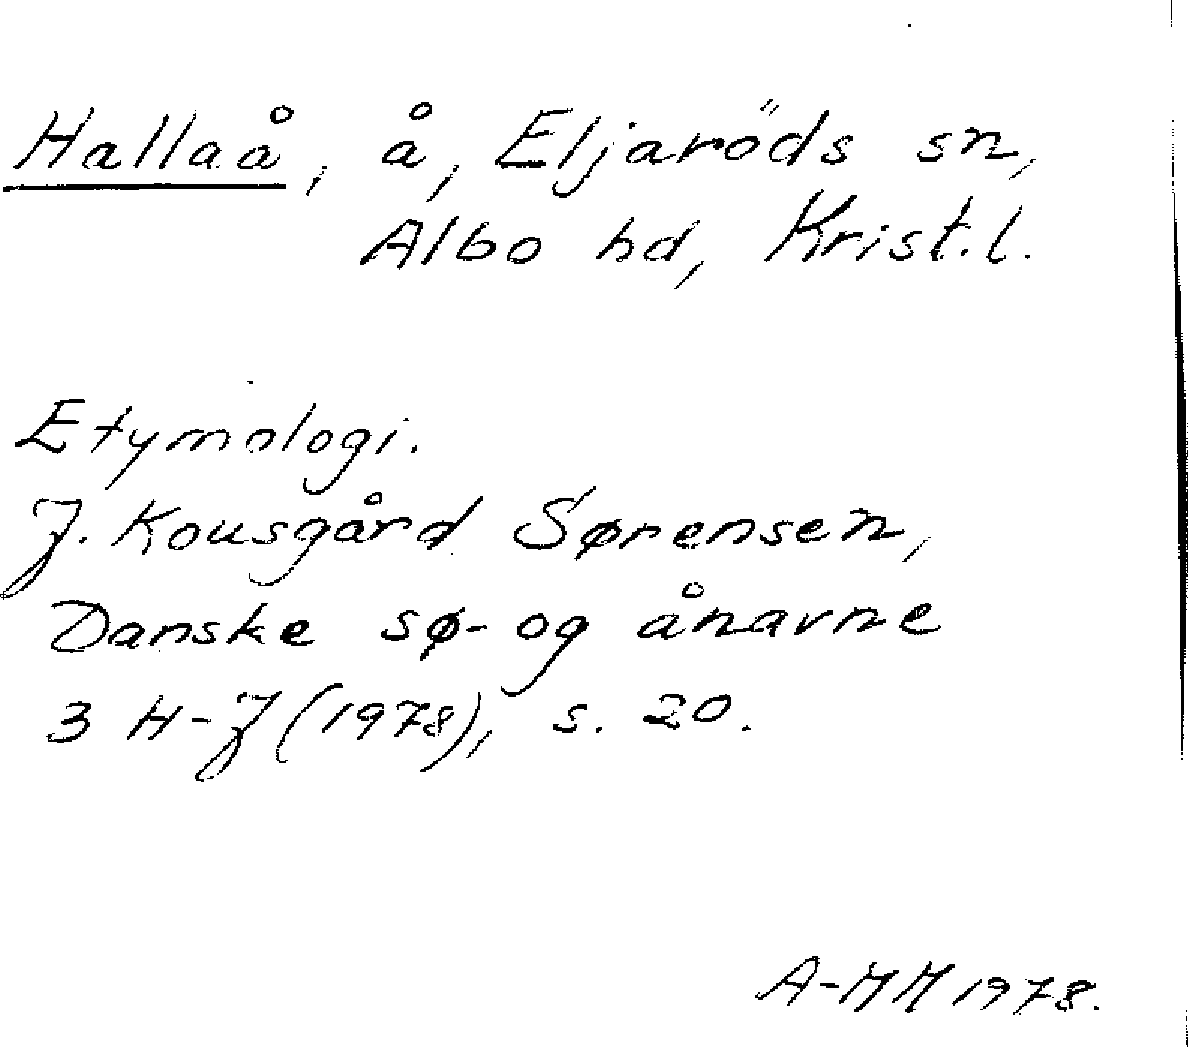 Hallaå, å, Eljaröds sn,
Albo hd, Krist.l.
Etymologi.
J. Kousgård Sørensen,
Danske sø- og ånavne
3 H-J (1978), s. 20.
A-MM 1978.